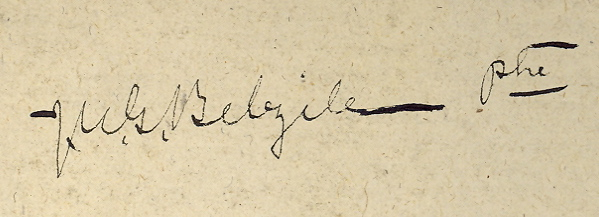 J. M. G. Belzile ptre